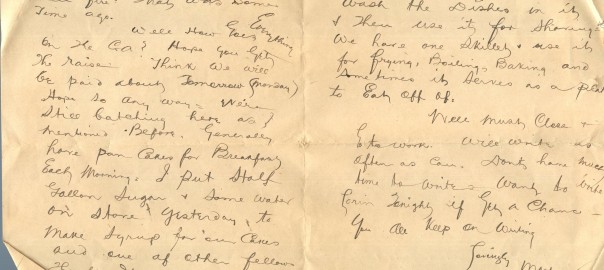 Some ago.
Well How Goes Everything
On The C.A? Hope you Gets
The raise Think We will
be paid about Tomorrow (monday)
Hope so any way. We're
Still Batching here as I
mentioned Before. Generally
have pan Cakes for Breakfast
Each Morning. I put Half
Gallon Sugar & Some water
on Stove Yesterday, to
make Syrup for our Cakes
and one of other fellows
Wash the Dishes in it
& Then use it for Shaving
We have one Skillet & use it
for frying, Boiling, Baking and
Sometimes it Serves as a plate
to Eat off of.
Well Must Close &
to work. Will write as
often as Can. Don't have much
time to write - Want to write
Tonight if Get a Chance -
You all Keep on Writing
Lovingly